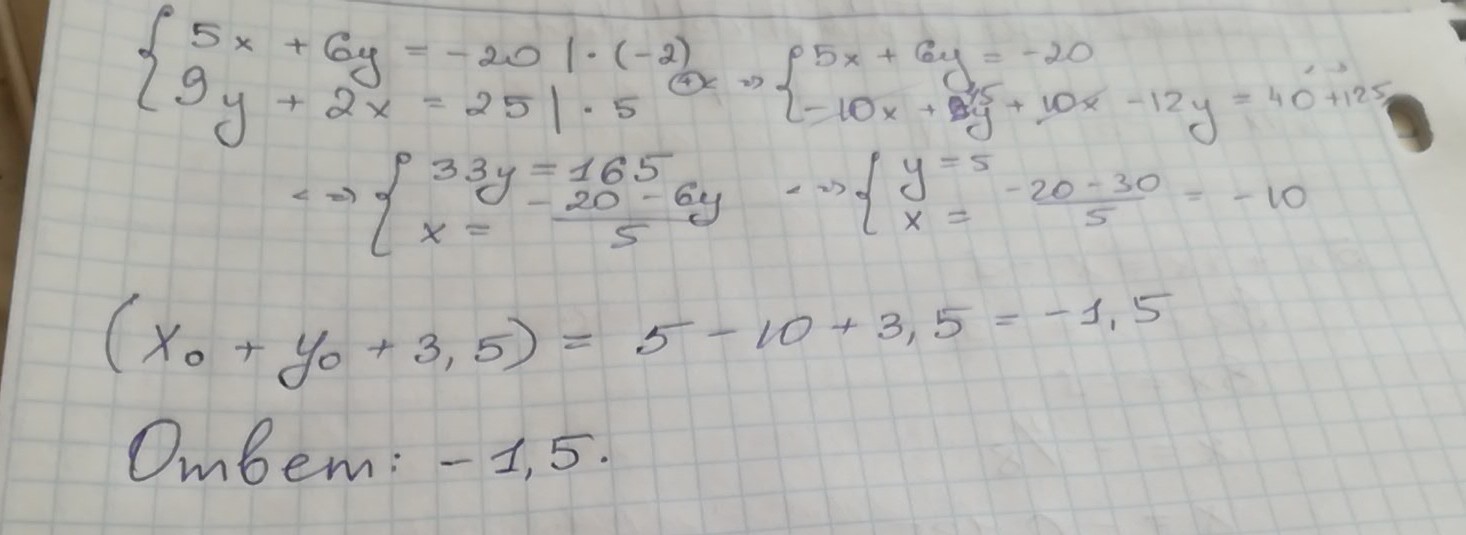 { 5x + 6y = -20 | · (-2)
{ 9y + 2x = 25 | · 5
<=> { 5x + 6y = -20
{ -10x + 45y + 10x - 12y = 40 + 125
<=> { 33y = 165
{ x = (-20 - 6y)/5
<=> { y = 5
{ x = (-20 - 30)/5 = -10
(x₀ + y₀ + 3,5) = 5 - 10 + 3,5 = -1,5
Ответ: -1,5.